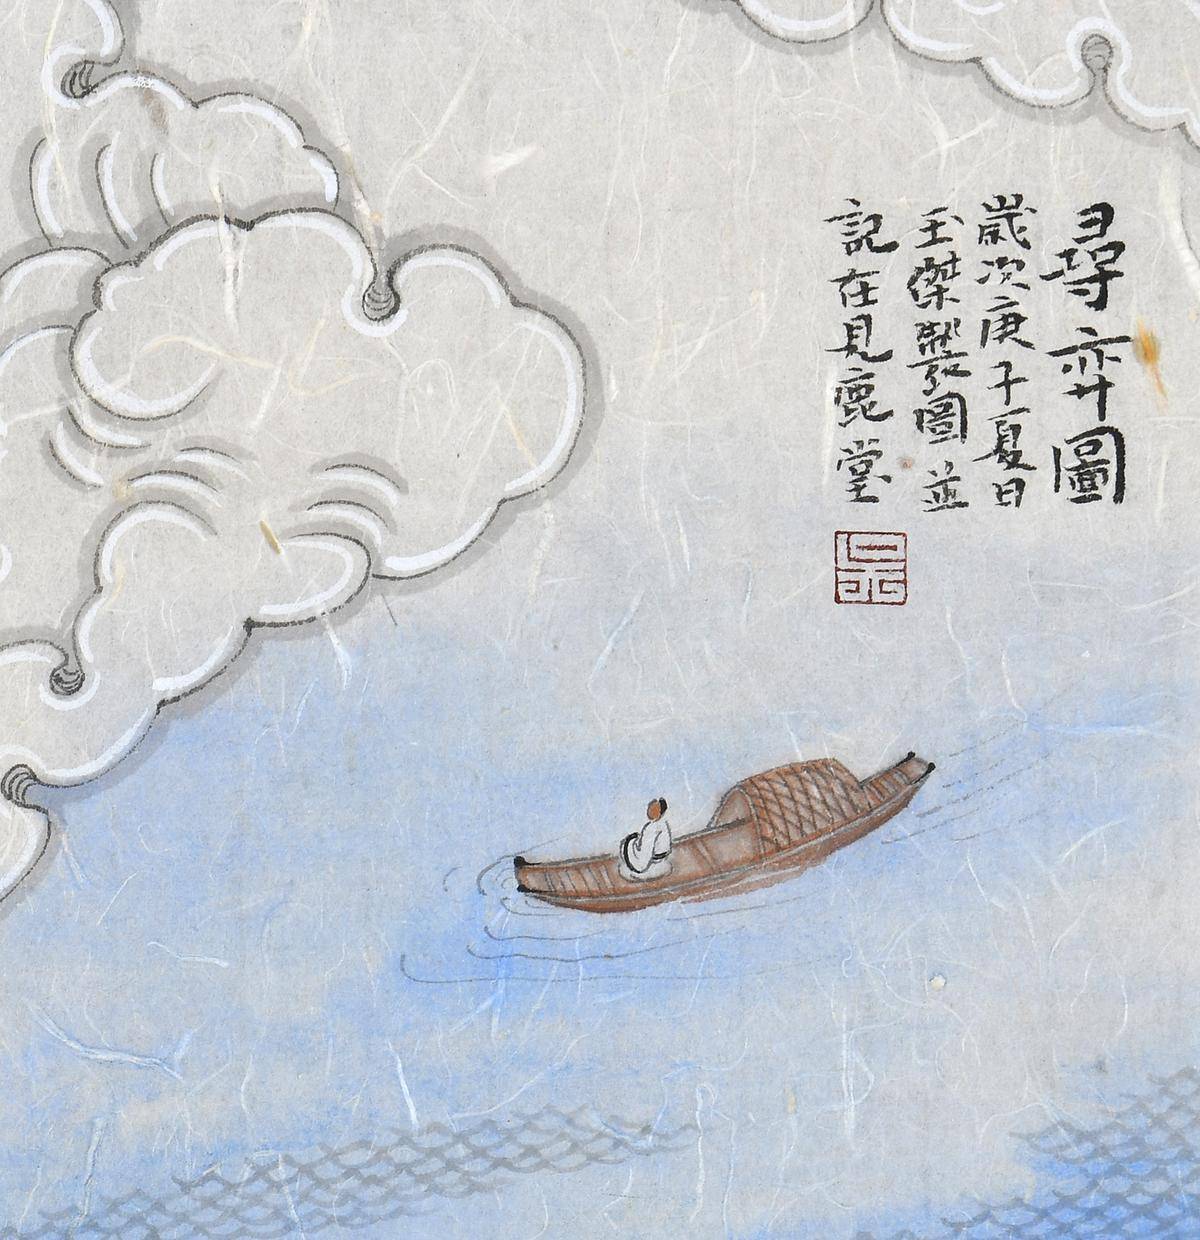 尋弈圖
歲次庚子夏日
玉傑製圖並
記在見鹿堂